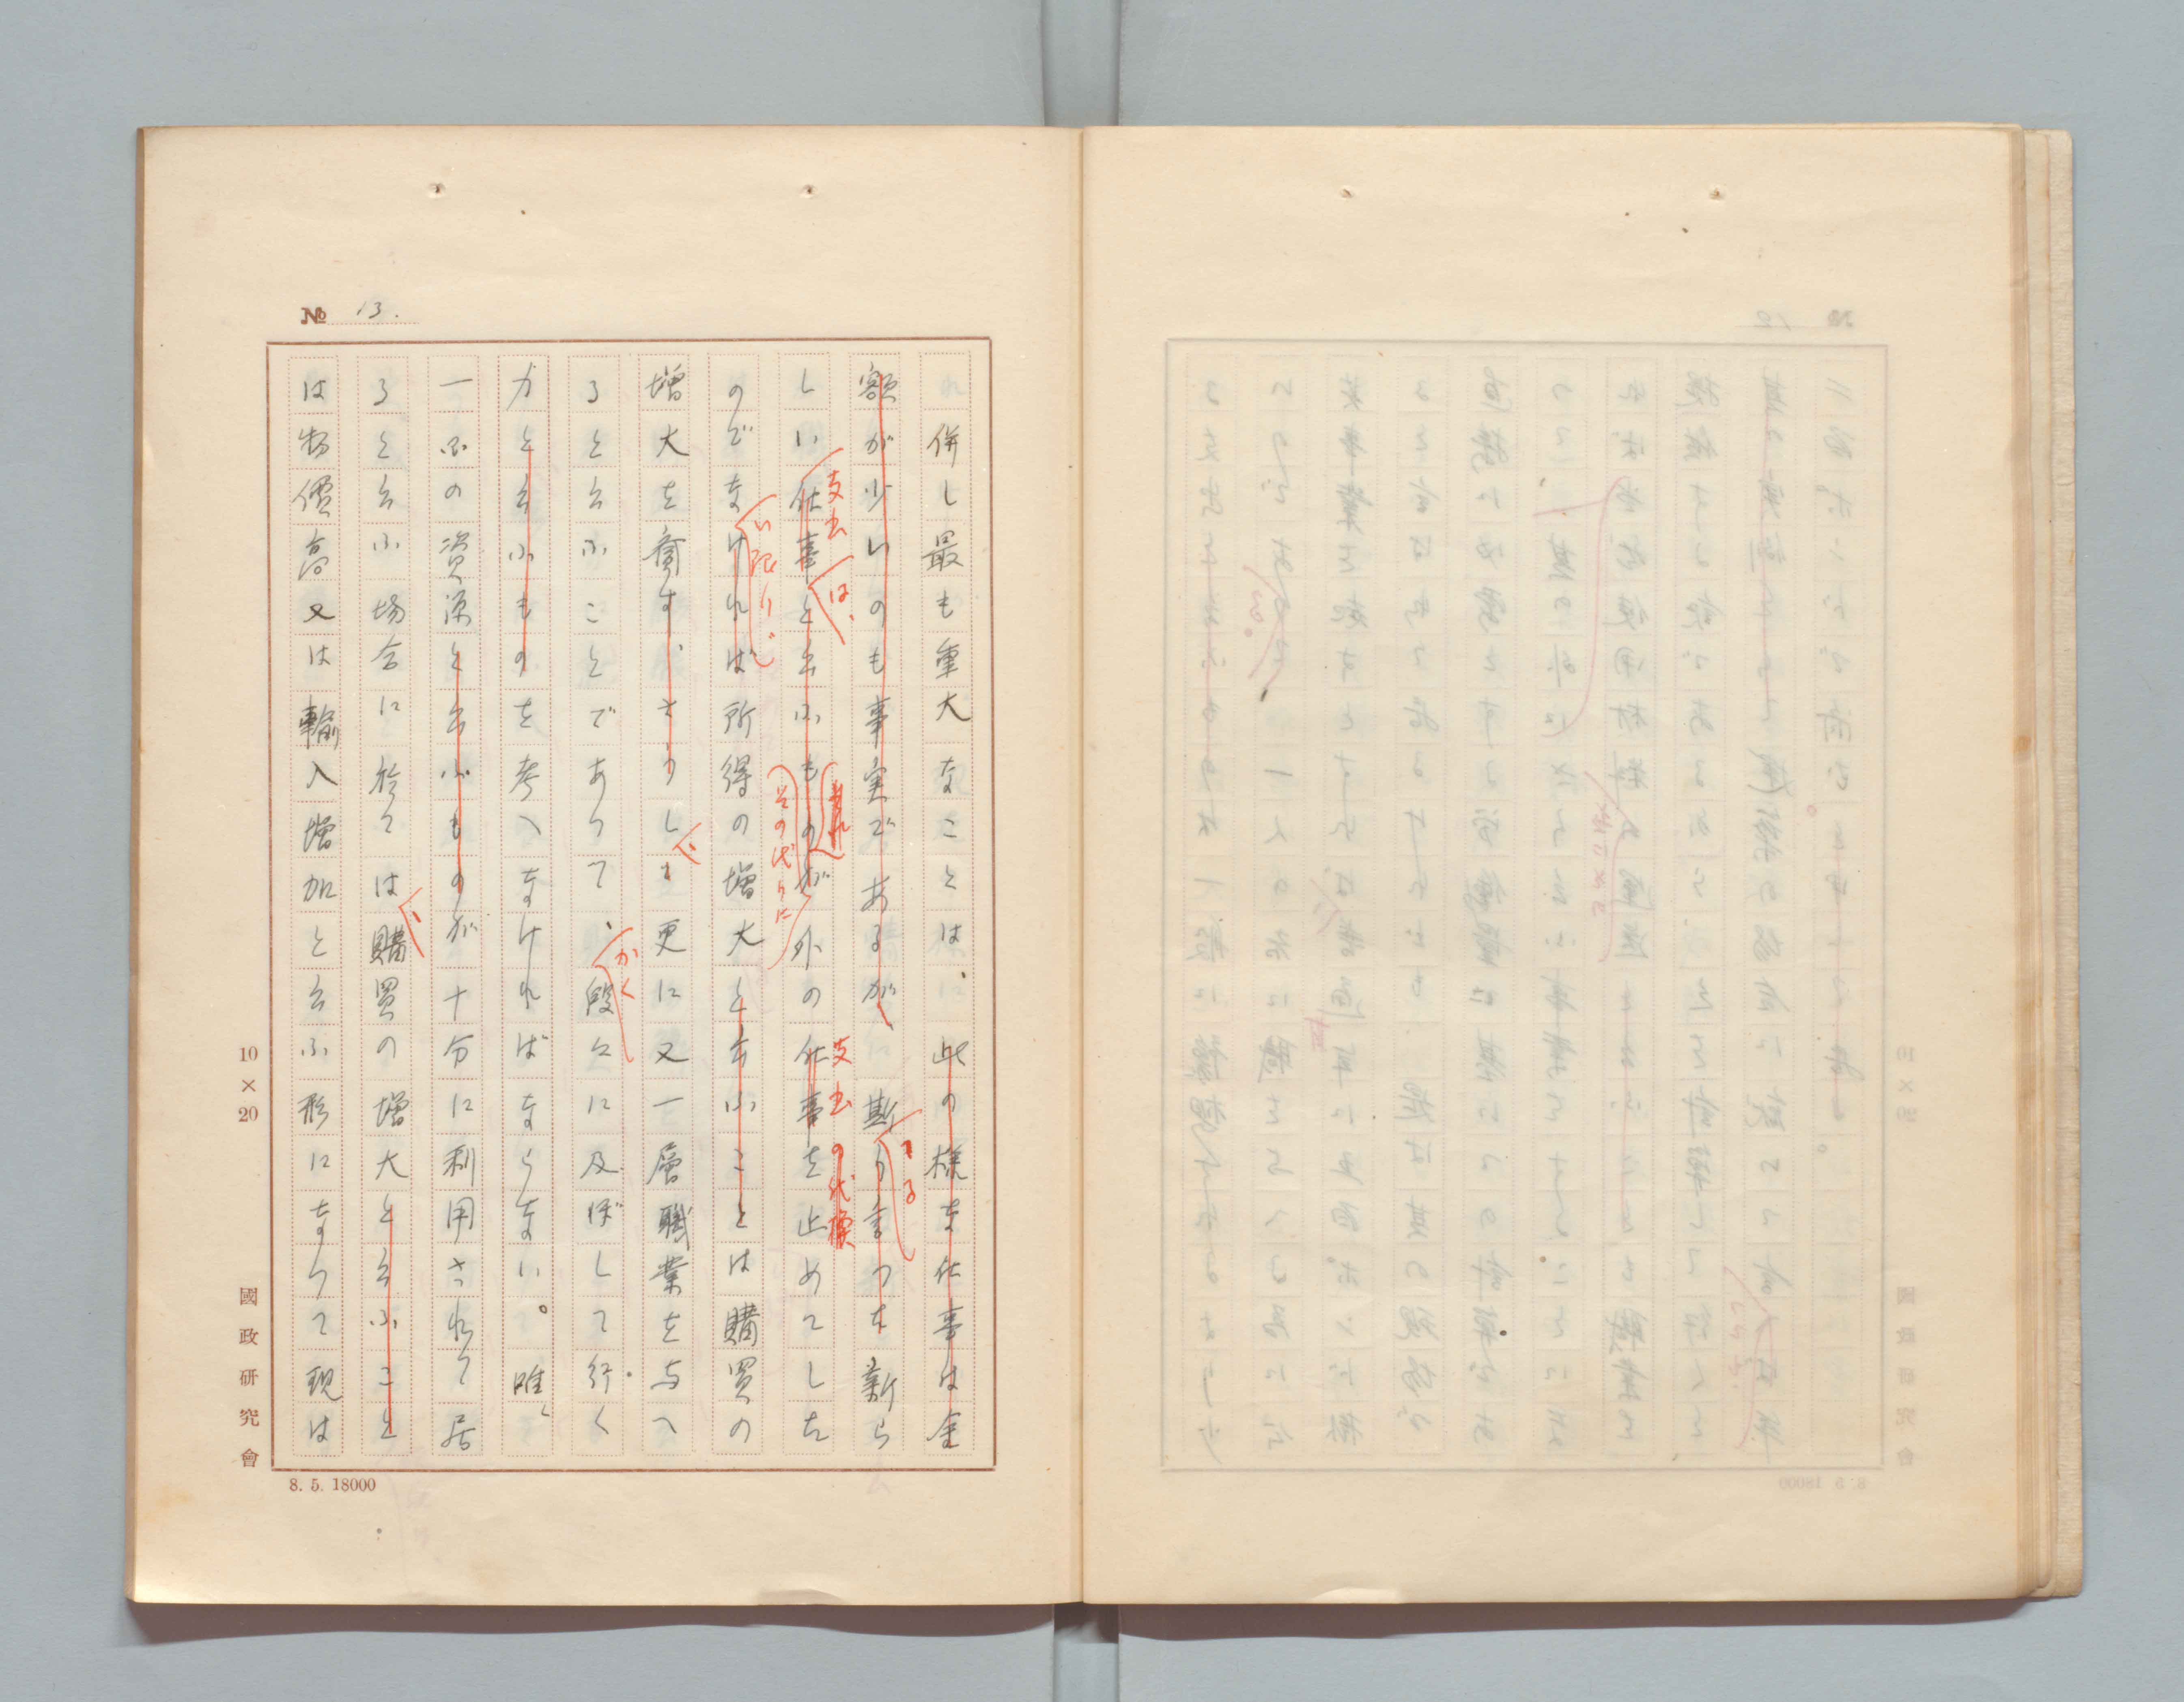 № 13.
併し最も重大なことは、此の様な仕事は金
額が少いのも事実であるが、斯う言つた新ら
かゝる
しい仕事と云ふものが外の仕事を止めてした
支出
は、
それ
その代りに
支出の代償
のでなければ所得の増大と云ふことは購買の
い限り、
増大を齎す、さうして更に又一層職業を与へ
ると云ふことであつて、段々に及ぼして行く
かく
力と云ふものを考へなければならない。唯、
一部の資源と云ふものが十分に利用されて居
ると云ふ場合に於ては購買の増大と云ふこと
は物價高又は輸入増加と云ふ形になつて現は
10×20
國政研究會
8. 5. 18000